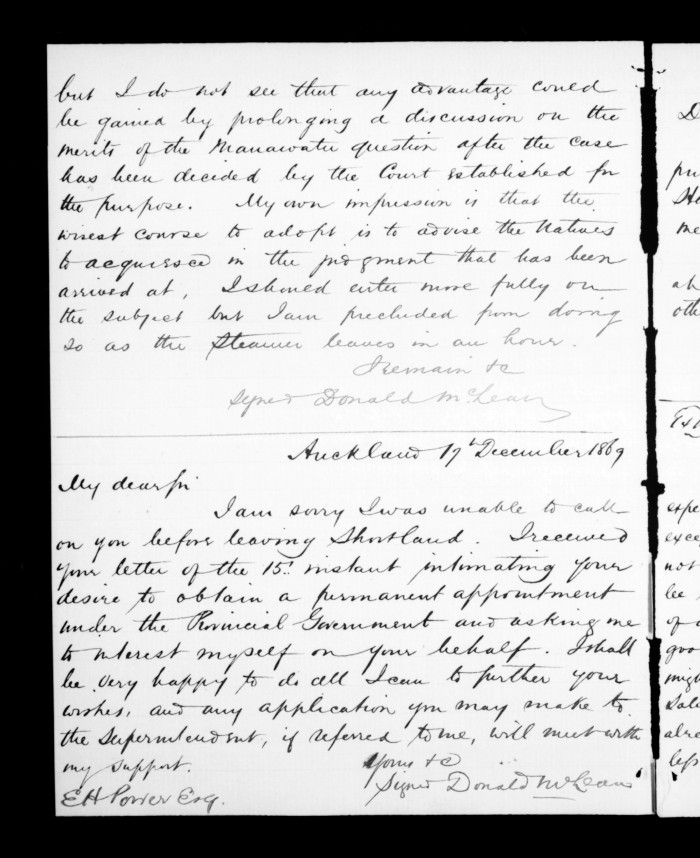 but I do not see that any advantage could
be gained by prolonging a discussion on the
merits of the Manawatu question after the case
has been decided by the Court established for
the purpose. My own impression is that the
wisest course to adopt is to advise the Natives
to acquiesce in the judgment that has been
arrived at, I should enter more fully on
the subject but I am precluded from doing
so as the Steamer leaves in an hour.
I remain &c
Signed Donald McLean
Auckland 17th December 1869
My dear Sir
I am sorry I was unable to call
on you before leaving Shortland. I received
your letter of the 15th instant intimating your
desire to obtain a permanent appointment
under the Provincial Government and asking me
to interest myself on your behalf. I shall
be very happy to do all I can to further your
wishes, and any application you may make to
the Superintendent, if referred to me, will meet with
my support.
Yours &c
Signed Donald McLean
E H Power Esq.